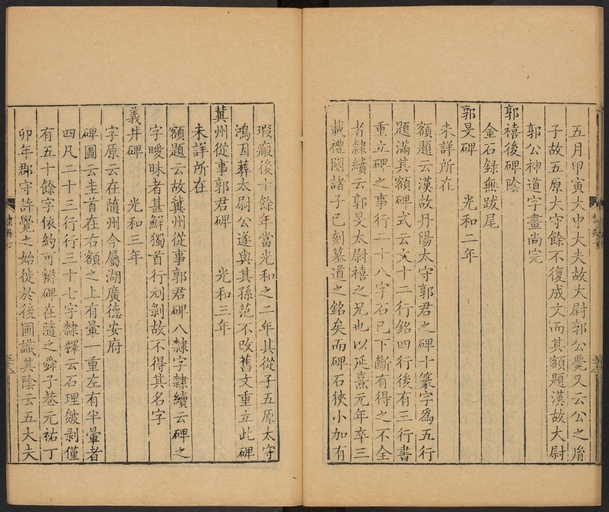 五月甲寅大中大夫故大尉郭公薨又云公之胤
子故五原大守餘不復成文而其額題漢故大尉
郭公神道字畫尚完
郭禧後碑陰
金石録無跋尾
郭旻碑　光和二年
未詳所在
額題云漢故丹陽太守郭君之碑十篆字為五行
題滿其額碑式云文十二行銘四行後有三行書
重立碑之事行二十八字石已下斷有得之不全
者隸續云郭旻太尉禧之兄也以延熹元年卒三
載禮闋諸子已刻墓道之銘矣而碑石狹小加有
瑕癥後十餘年當光和之二年其從子五原太守
鴻因葬太尉公遂與其孫范不改舊文重立此碑
冀州從事郭君碑　光和三年
未詳所在
額題云故冀州從事郭君碑八隸字隸續云碑之
字曖昧者甚鮮獨首行刓剝故不得其名字
義井碑　光和三年
字原云在隨州今屬湖廣德安府
碑圖云圭首在右額之上有暈一重左有半暈者
四凡二十三行行三十七字隸釋云石理皴剥僅
有五十餘字依約可辨碑在隨之舜子巷元祐丁
卯年郡守許覺之始徙於後圃識其陰云五大夫